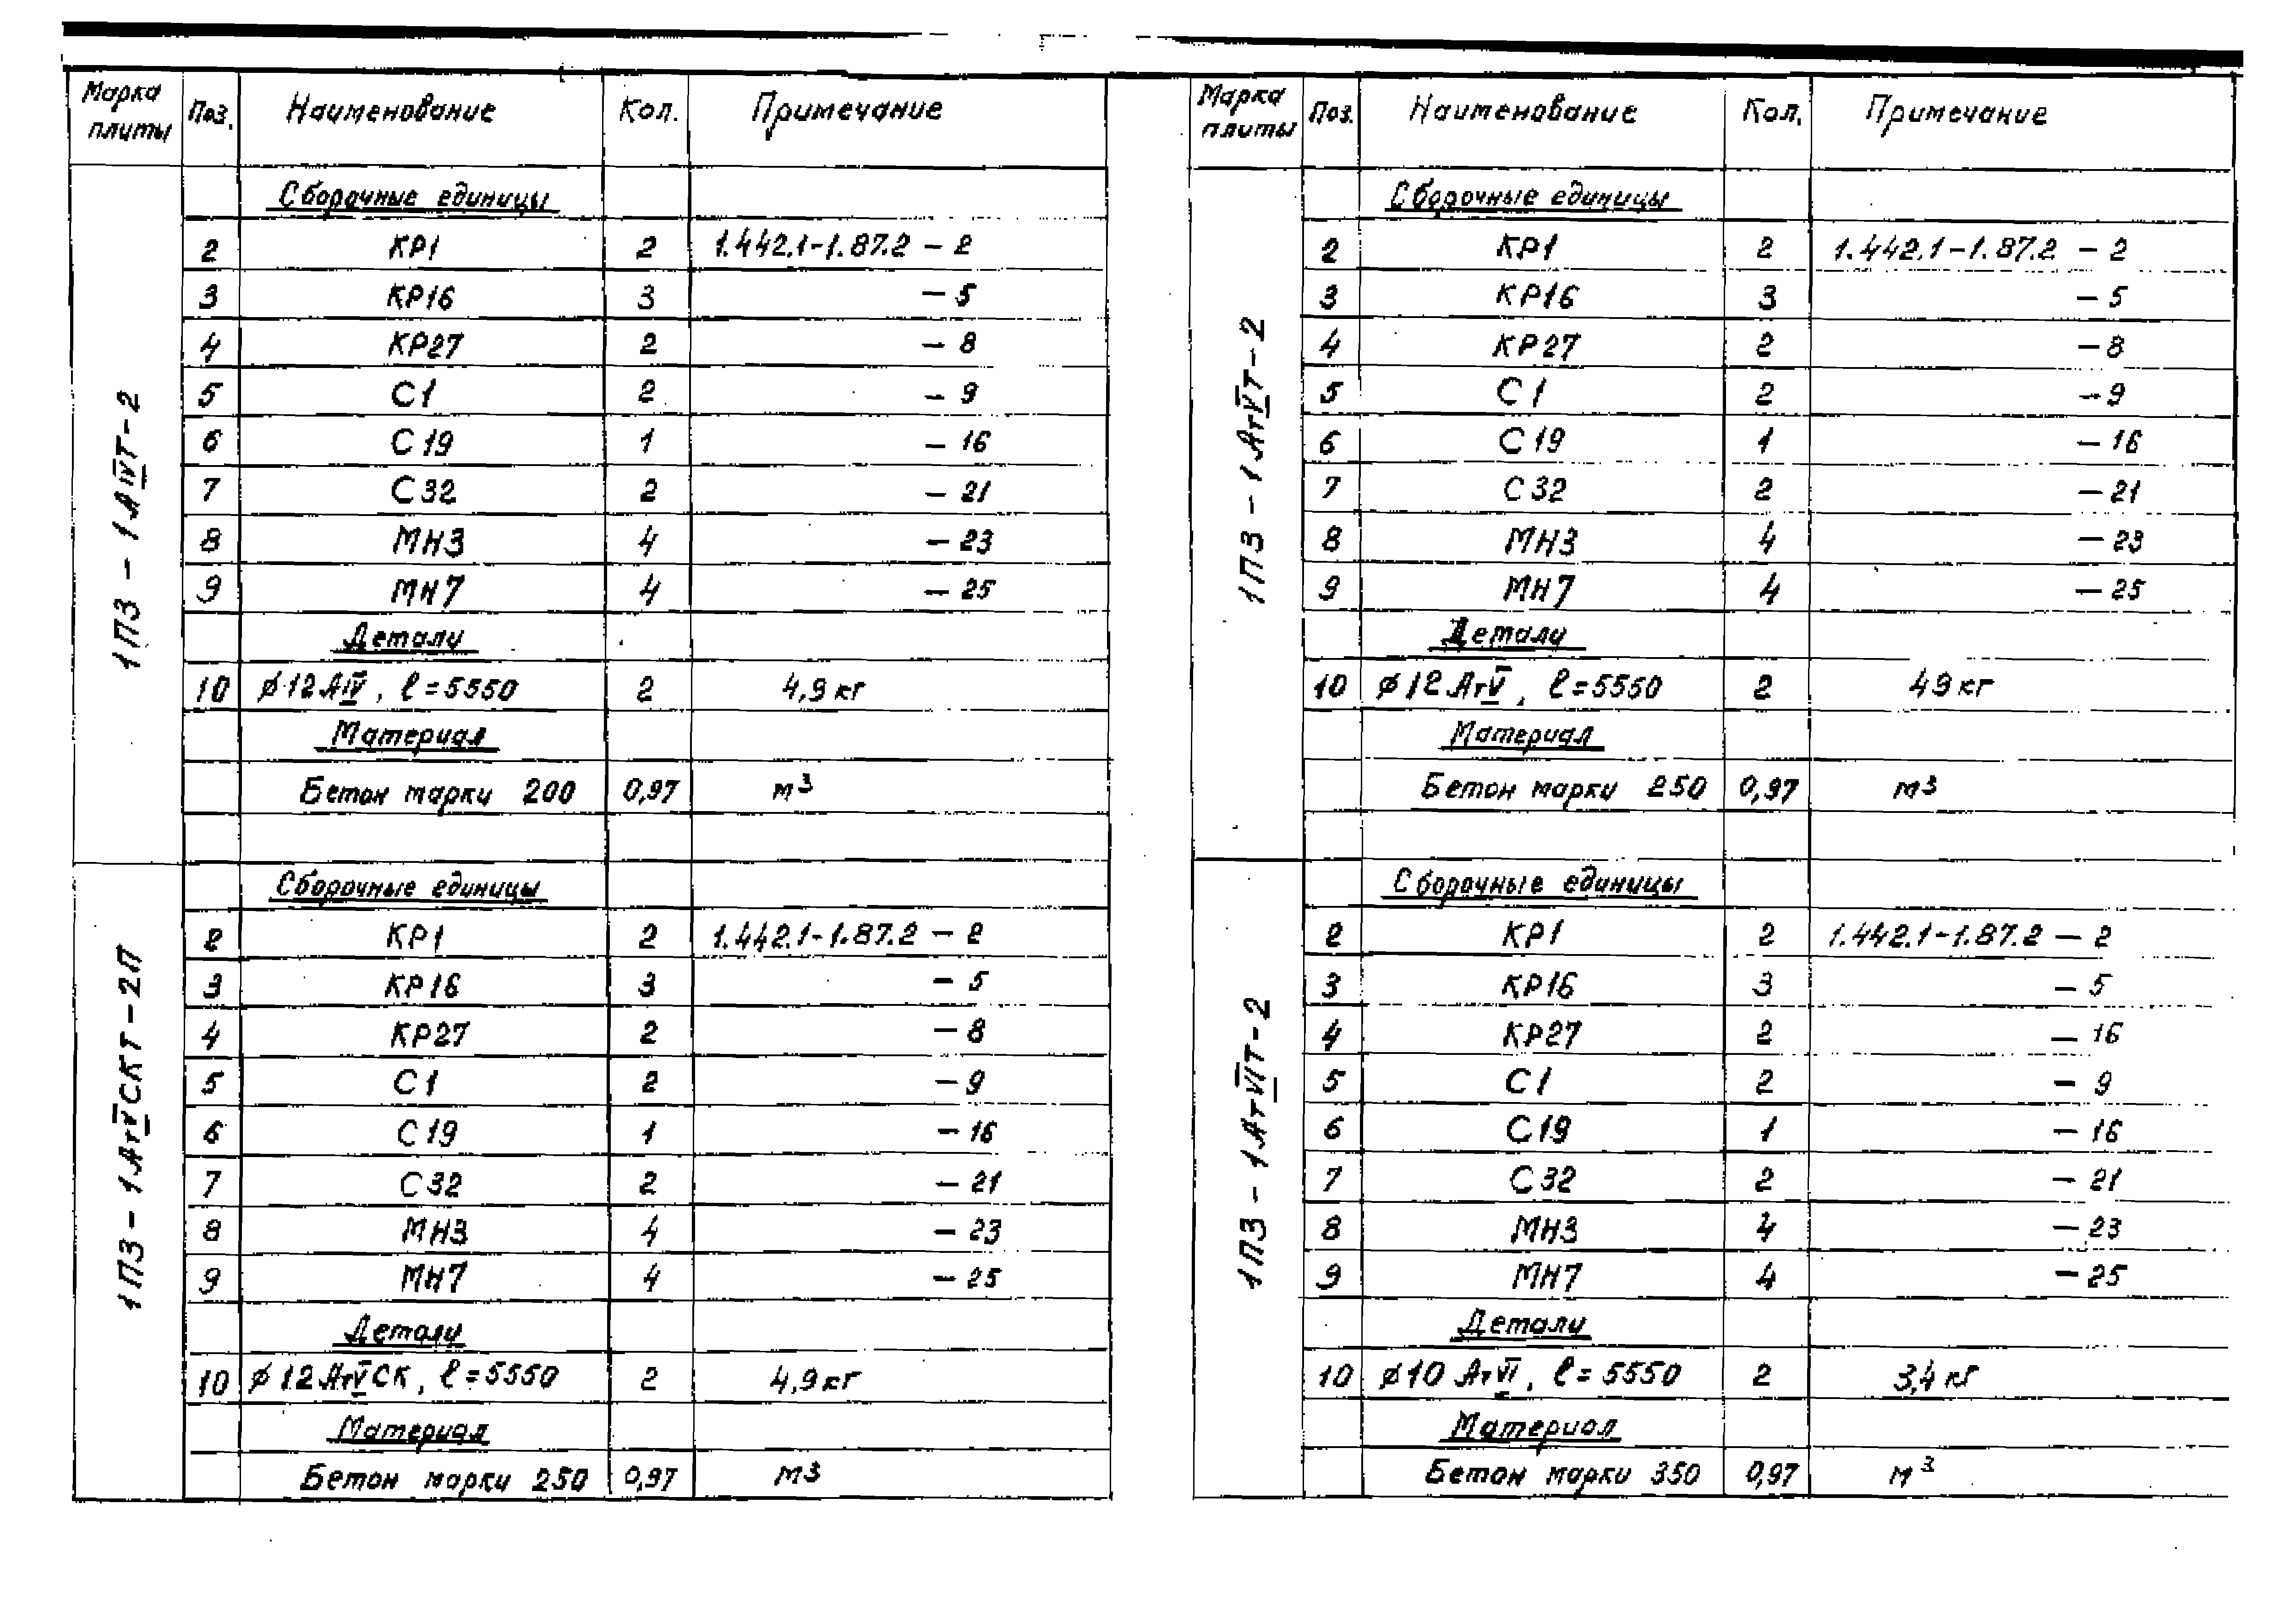 Марка плиты Поз. Наименование Кол. Примечание
1П3 - 1АIVТ-2
Сборочные единицы
2 КР1 2 1.442.1-1.87.2 - 2
3 КР16 3 - 5
4 КР27 2 - 8
5 С1 2 - 9
6 С19 1 - 16
7 С32 2 - 21
8 МН3 4 - 23
9 МН7 4 - 25
Детали
10 ⌀12АIV, ℓ=5550 2 4,9кг
Материал
Бетон марки 200 0,97 м³
1П3 - 1АтVСКТ-2П
Сборочные единицы
2 КР1 2 1.442.1-1.87.2 - 2
3 КР16 3 - 5
4 КР27 2 - 8
5 С1 2 - 9
6 С19 1 - 16
7 С32 2 - 21
8 МН3 4 - 23
9 МН7 4 - 25
Детали
10 ⌀12АтVСК, ℓ=5550 2 4,9кг
Материал
Бетон марки 250 0,97 м3
Марка плиты Поз. Наименование Кол. Примечание
1П3 - 1АтVТ-2
Сборочные единицы
2 КР1 2 1.442.1-1.87.2 - 2
3 КР16 3 - 5
4 КР27 2 - 8
5 С1 2 - 9
6 С19 1 - 16
7 С32 2 - 21
8 МН3 4 - 23
9 МН7 4 - 25
Детали
10 ⌀12АтV, ℓ=5550 2 49кг
Материал
Бетон марки 250 0,97 м³
1П3 - 1АтVIТ-2
Сборочные единицы
2 КР1 2 1.442.1-1.87.2 - 2
3 КР16 3 - 5
4 КР27 2 - 16
5 С1 2 - 9
6 С19 1 - 16
7 С32 2 - 21
8 МН3 4 - 23
9 МН7 4 - 25
Детали
10 ⌀10 АтVI, ℓ=5550 2 3,4кг
Материал
Бетон марки 350 0,97 м³